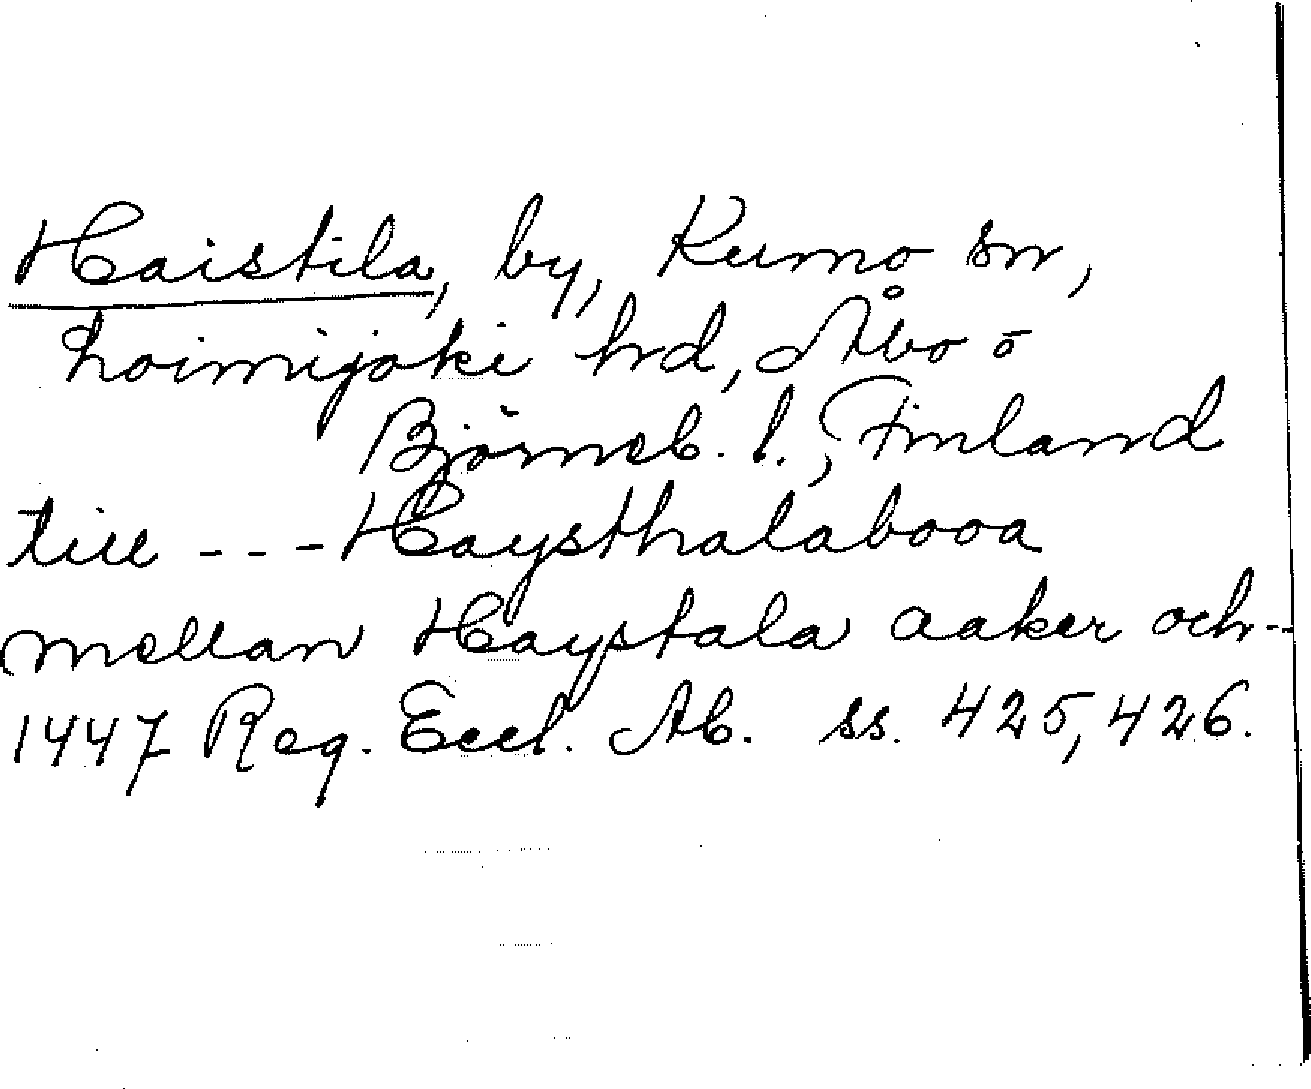 Haistila, by, Kumo sn,
Loimijoki hrd, Åbo o
Björneb. l., Finland
till --- Haysthalabooa
mellan Haystala aaker och--
1447 Reg. Eccl. Ab. ss. 425, 426.